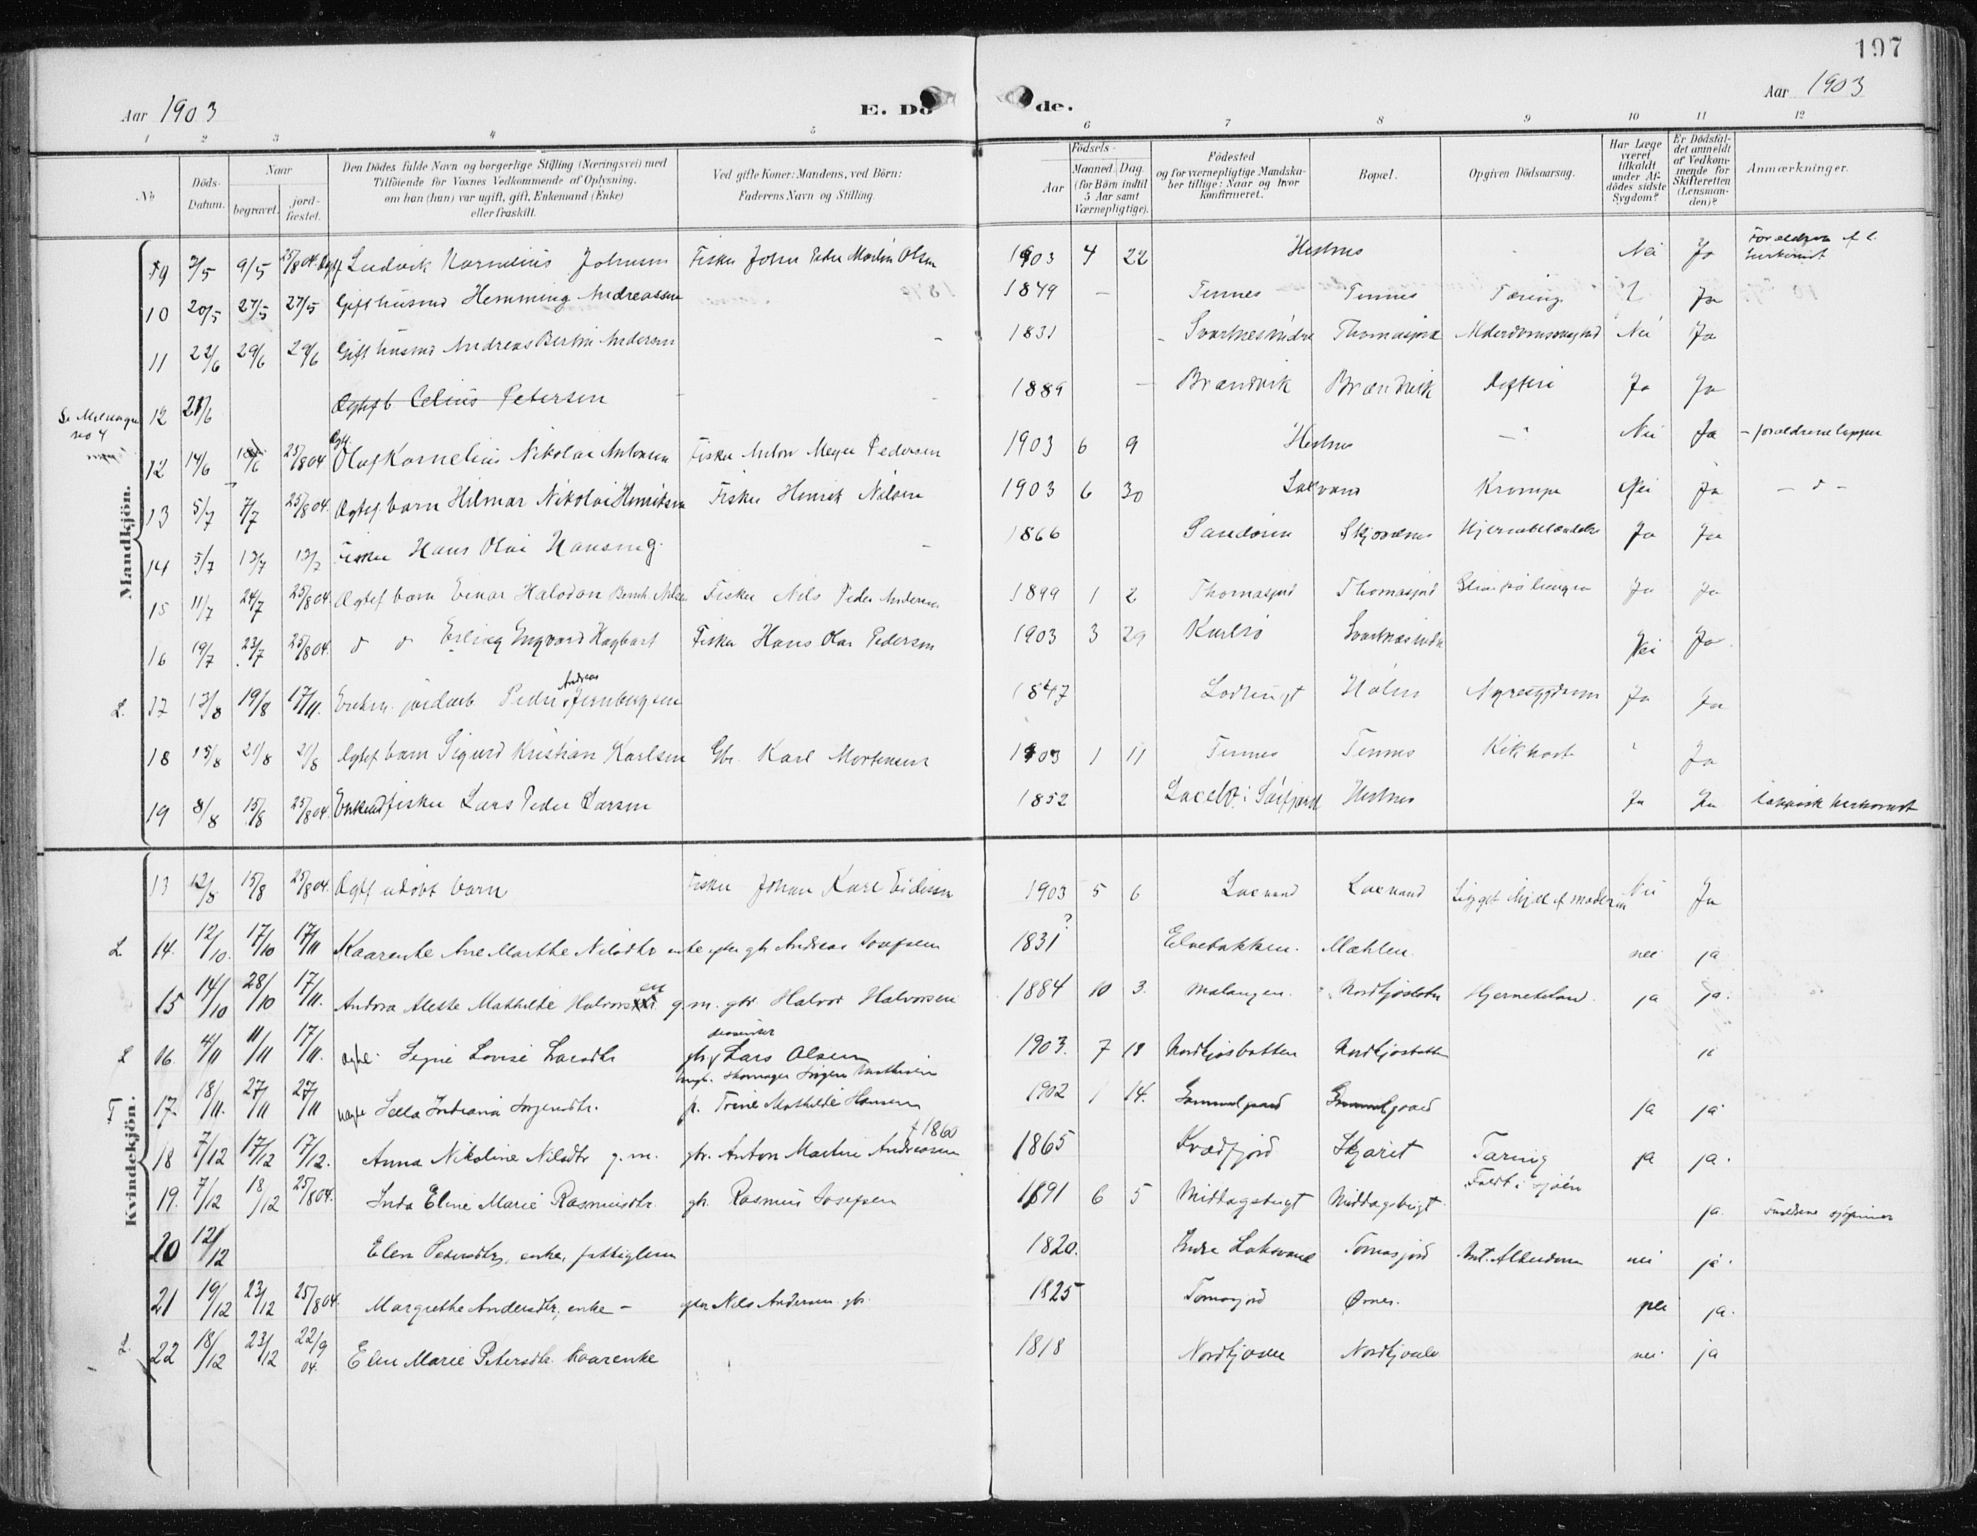 197
Aar 1903
E. Dö de.
Aar 1903
1 2 3 4 5 6 7 8 9 10 11 12
No
Döds-Datum.
Naar
begravet.
jord-fæstet.
Den Dödes fulde Navn og borgerlige Stilling (Næringsvei) med
Tilföiende for Voxnes Vedkommende af Oplysning,
om han (hun) var ugift, gift, Enkemand (Enke)
eller fraskilt.
Ved gifte Koner: Mandens, ved Börn:
Faderens Navn og Stilling.
Födsels-
Aar
Maaned. Dag.
(for Börn indtil
5 Aar samt
Værnepligtige).
Födested
og for værnepligtige Mandska-
ber tillige: Naar og hvor
konfirmeret.
Bopæl.
Opgiven Dödsaarsag.
Har Læge
været
tilkaldt
under Af-
dödes sidste
Sygdom?
Er Dödsfal-
det anmeldt
af Vedkom-
mende for
Skifteretten
(Lensman-
den)?
Anmærkninger.
Mandkjön.
9 7/5 9/5 25/8 04 Ludvik Kornelius Johnsen Fisker John Peder Martin Olsen 1903 4 22 Hestnes Nei Ja
10 20/5 27/5 27/5 Gift husmd Hemming Andreassen 1849 - Tennes Tennes Tæring Ja
11 22/6 29/6 29/6 Gift husmd Andreas Bertin Andersen 1831 Svartnesindre Thomasjord Nei Ja
12 21/6 Ægtef b Celius Petersen 1889 Brændvik Brændvik Difteri Ja Ja
12 14/6 25/8 04 Olaf Kornelius Nikolai Antonsen Fisker Anton Meyer Pedersen 1903 6 9 Hestnes Nei Ja - forældrene lapper
13 5/7 7/7 25/8 04. Ægtef barn Hilmar Nikolai Henriksen Fisker Henrik Nilsen 1903 6 30 Lakvand Krampe Nei Ja - d -
14 5/7 13/7 13/7 Fisker Hans Olai Hansen g. 1866 Sandören Hjernebetændelse Ja Ja
15 11/7 24/7 25/8 04 Ægtef barn Einar Halvdan Bernh. Nilsen Fisker Nils Peder Andersen 1899 1 2 Thomasjord Thomasjord Ja Ja
16 19/7 23/7 25/8 04. d d Erling Ingvard Hagbart Fisker Hans Olai Pedersen 1903 3 29 Karlsö Svartnesindre Nei Ja
L. 17 13/8 19/8 17/11. Enkem. jordarb Peder Andreas Jernbergsen 1847 Holm Nyresygdom Ja Ja
18 15/8 21/8 21/8 Ægtef barn Sigurd Kristian Karlsen Gbr. Karl Mortensen 1903 1 11 Tennes Tennes Kikhoste Ja
19 8/8 15/8 25/8 04. Enkemd fisker Lars Peder Larsen 1852 Hestnes Ja Ja lappisk herkomst
Kvindekjön.
13 12/8 15/8 25/8 04. Ægtef udöbt barn Fisker Johan Karl Eidissen 1903 5 6 Lakvand Lakvand Ligget ihjel af moderen Nei Ja
L 14. 12/10. 17/10 17/11 Kaarenke Ane Marthe Nilsdtr enke efter gbr Andreas Josefsen 1831 ? Elvebakken. Mæhlen. nei ja
15 14/10 28/10 17/11. Andora Aleste Mathilde Halvorsen g.m. gbr. Halvor Halvorsen 1884 10 3. Malangen. Nordkjosbotn Hjernebetænd. ja ja.
L 16 4/11 11/11 17/11. ægte. Signe Lovise Larsdtr gbr Lars Olsen 1903. 7 18 Nordkjosbotten Nordkjosbotten
17. 18/11. 27/11 27/11 uægte Sella Indiana Jörgensdtr. ungk. skomager Jörgen Mathisen p. Trine Mathilde Hansen 1902 1 14. Gammelgaard Gammelgaard ja ja
18 7/12 17/12 17/12. Anna Nikoline Nilsdtr g.m. gbr. Anton Martin Andreassen f 1860 1865 Kvædfjord Skjæret Tæring ja ja.
19. 7/12 18/12 25/8 04. Inda Eline Marie Rasmusdtr. gbr. Rasmus Josefsen 1891 6 5 Middagsbugt Middagsbugt Faldt i sjöen ja.
20 12/12 Elen Petersdtr, enke, fattiglem 1820. Indre Laksvand Tomasjord Ant. Alderdom nei ja.
21 19/12 23/12 25/8 04. Margrethe Andersdtr, enke - efter Nils Andersen gbr. 1825 Tomasjord Örnes. nei ja.
L. 22 18/12 23/12 22/9 04. Elen Marie Petersdtr. kaarenke 1818 nei ja